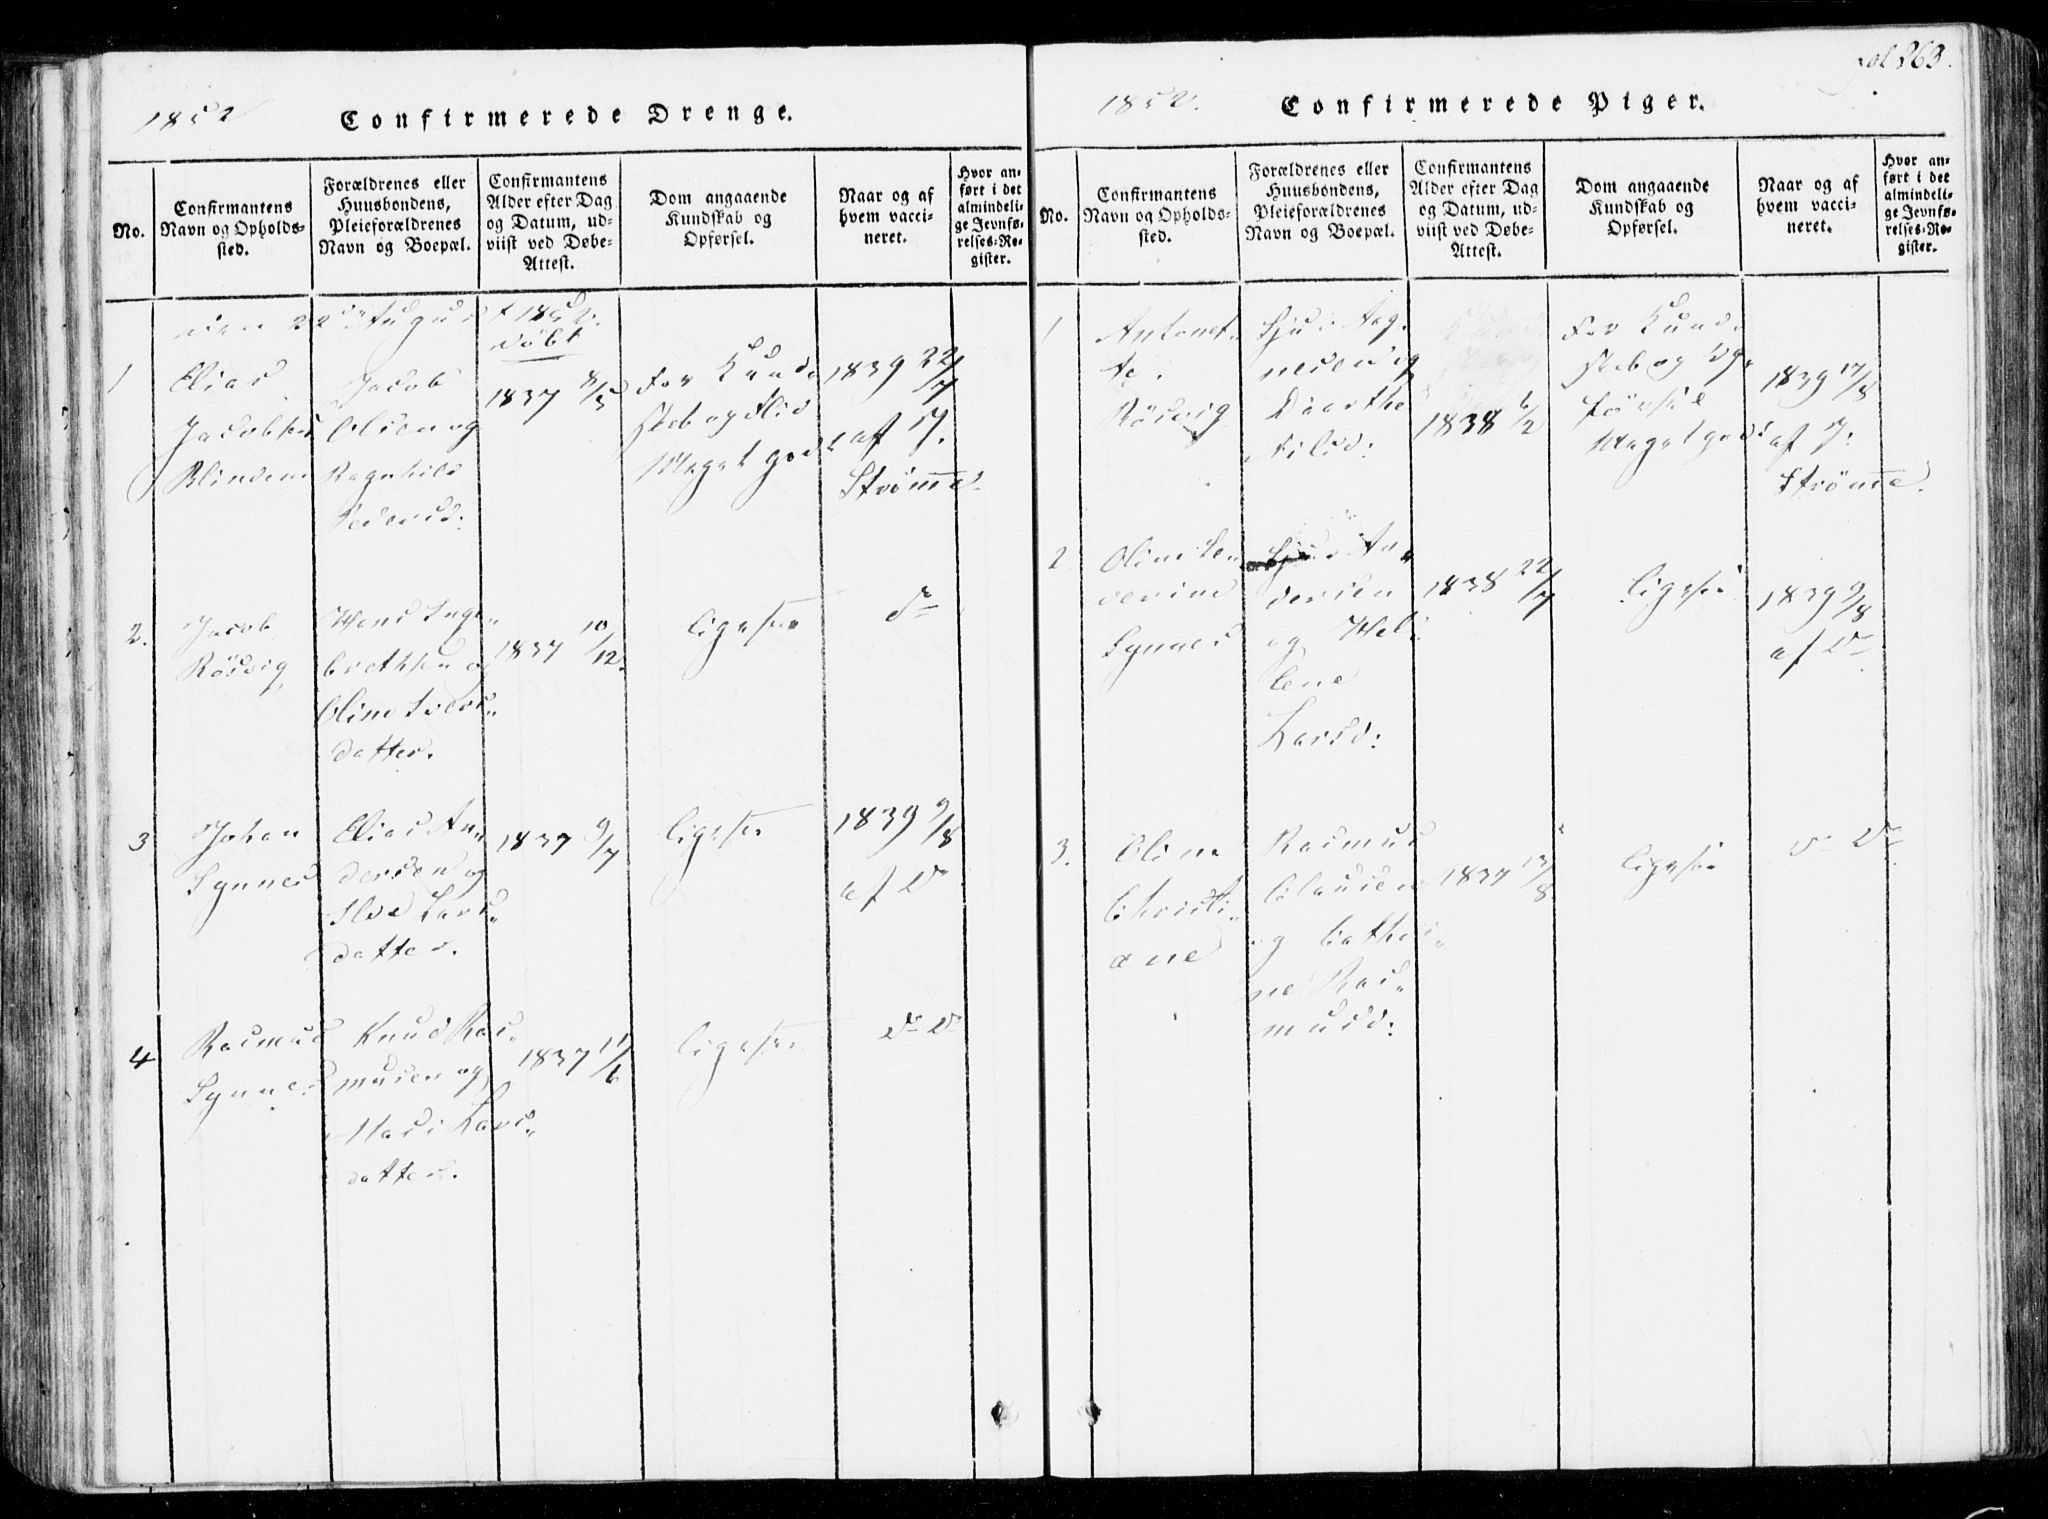 fol 263.
1852
Confirmerede Drenge.
No.
Confirmantens
Navn og Opholds-
sted.
Forældrenes eller
Huusbondens,
Pleieforældrenes
Navn og Boepæl.
Confirmantens
Alder efter Dag
og Datum, ud-
viist ved Døbe-
Attest.
Dom angaaende
Kundskab og
Opførsel.
Naar og af
hvem vacci-
neret.
Hvor an-
ført i det
almindeli-
ge Jevnfø-
relses-Re-
gister.
den 22de August 1852.
døbt
1
Elias
Jacobsen
Blindem
Jacob
Olsen og
Ragnhild
Pedersd:
1837 8/5
For Kund-
skab og Flid
Meget godt
1839 22/7
af J.
Strömme.
2.
Jacob
Rösvig
Hans Inge-
brethsen og
Oline Ivers-
datter.
1837 10/12.
ligesaa
do
3
Johan
Synnes
Elias An-
dersen og
Lars-
datter.
1837 9/7
ligesaa
1839 9/8
af do
4
Rasmus
Synnes
Knud Ras-
musen og
Mari Lars-
datter.
1837 11/6
ligesaa
do do
1852.
Confirmerede Piger.
No.
Confirmantens
Navn og Opholds-
sted.
Forældrenes eller
Huusbondens,
Pleieforældrenes
Navn og Boepæl.
Confirmantens
Alder efter Dag
og Datum, ud-
viist ved Døbe-
Attest.
Dom angaaende
Kundskab og
Opførsel.
Naar og af
hvem vacci-
neret.
Hvor an-
ført i det
almindeli-
ge Jevnfø-
relses-Re-
gister.
1
Antonet-
te.
Rösvig
Sjur Aag-
nesen og
Dorthe
Nilsd:
1838 6/2
For Kund-
skab og Op-
förse
Meget godt
1839 17/8
af J.
Strömme.
2.
Oline Se-
verine
Synnes
An-
dersen
og Hel-
lene
Larsd:
1838 22/7
ligesaa
1839 9/8
af do
3.
Oline
Christi-
ane
Rasmus
Clausen
og Cathri-
ne Ras-
musd:
1837 13/8
ligesaa
do do